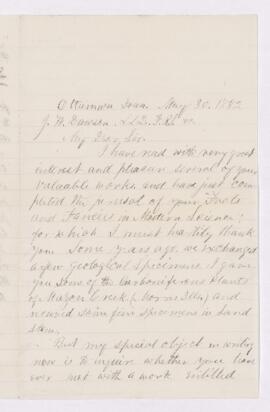 Ottumwa Iowa Aug 30. 1882
J. W. Dawson LLD. F.R.S.
My Dear Sir.
I have read with very great
interest and pleasure several of your
valuable works and have just com-
pleted the perusal of your Facts
and Fancies in Modern Science;
for which I must heartily thank
you. Some years ago, we exchanged
a few Geological Specimens. I gave
you some of the Carboniferous Plants
of Mazon Creek, and
received some fine specimens in
But my special object in writing
now is to inquire whether you have
ever met with a work entitled